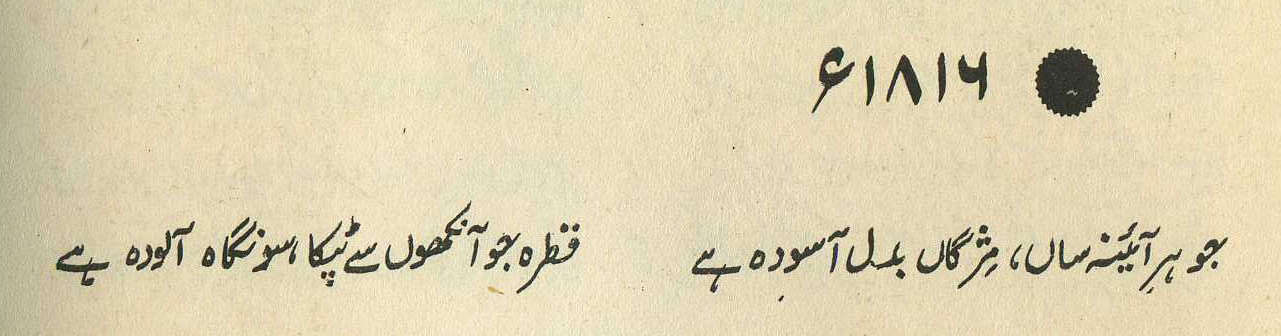 ۱۸۱۶ء
جوہرِ آئینہ ساں، مژگاں بدل آسودہ ہے قطرہ جو آنکھوں سے ٹپکا، سو نگاہ آلودہ ہے